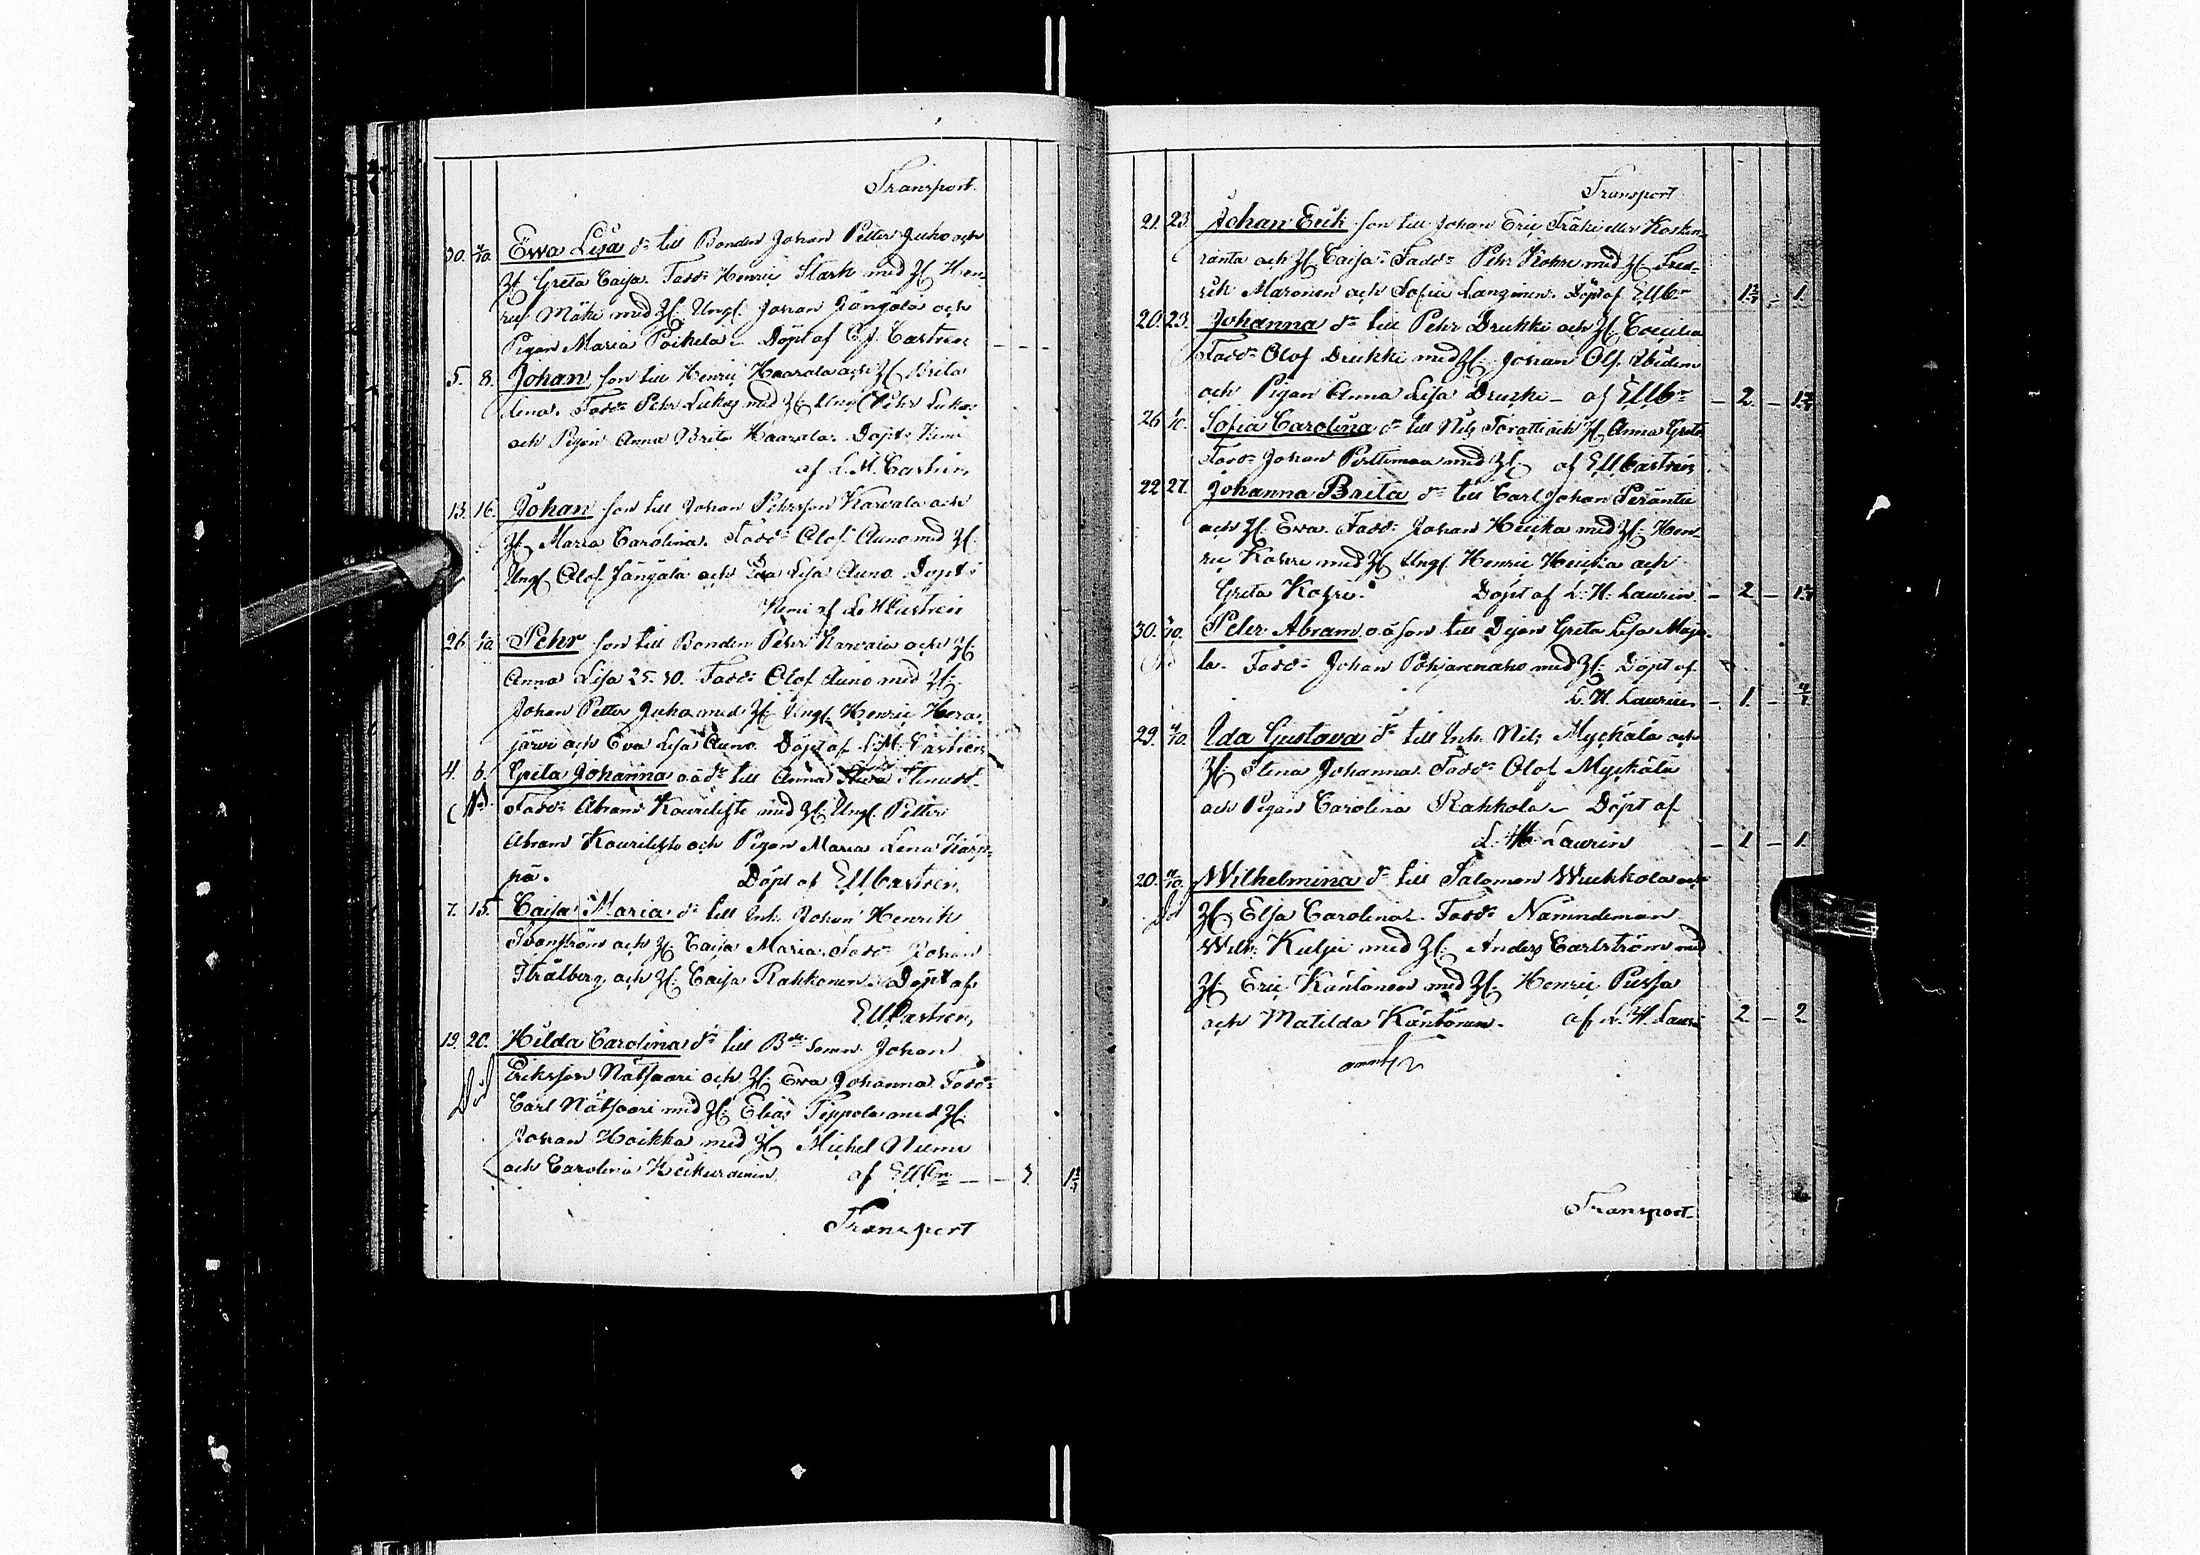 Transport
30. 4/10. Ewa Lisa dr till Bonden Johan Petter Juho och
H. Greta Caisa. Fadd: Henric Stark med H. Hen-
ric Mäki med H. Ungk. Johan Jängälä och
Pigan Maria Poikela. Döpt af C. J. Castrén
5. 8. Johan son till Henric Haarala och H. Brita
Lena. Fadd: Pehr Lukas med H. Ungk Pehr
och Pigan Anna Brita Haarala. Döpt i Kemi
af L. H. Castrén
13. 16. Johan son till Johan Pehrsson Karvala och
H. Maria Carolina. Fadd: Olof Auno med H.
Ungk Olof Jängälä och Eva Lisa Auno Döpt i
Kemi af L H Castrén
26 1/10 Pehr son till Bonden Pehr Karvala och H.
Anna Lisa 25. 30. Fadd: Olof Auno med H.
Johan Petter Juho med H. Ungk Henric Hera-
järvi och Eva Lisa Auno. Döpt af L. H. Castrén
4. 6. Greta Johanna oä dr till Anna Stina
Fadd: Abram Kouriliste med H. Ungk. Petter
Abram Kouriliste och Pigan Maria Lena Kärp-
pä. Döpt af E M Castrén
7. 15. Caisa Maria dr till Inh. Johan Henrik
Svanström och H. Caisa Maria. Fadd: Johan
Strålberg och H. Caisa Rahkonen. Döpt af
E M Castrén
19. 20. Hilda Carolina dr till Bde Sonen Johan
Död Eriksson Nätsaari och H. Eva Johanna. Fadd:
Carl Nätsaari med H. Elias Teppola med H.
Johan Hoikka med H. Michel Niemi
och Carolina af E M Cn — 3.
Transport
Transport
21. 23. Johan Erik son till Johan Eric Träki eller Kosken-
ranta och H. Caisa. Fadd: Pehr Kohri med H. Fred-
rik Maronen och Sofia Langinen. Döpt af E M Cn
20. 23. Johanna dr till Pehr Drukki och H. Caecilia
Fadd: Olof Drukki med H. Johan Olf.
och Pigan Anna Lisa Drucki — af E M Cn — 2. —
26 1/10. Sofia Carolina dr till Nils och H. Anna Greta
Fadd: Johan Perttunen med H. af E M Castrén
22 27. Johanna Brita dr till Carl Johan Peräntie
och H. Eva. Fadd: Johan Heicka med H. Hen-
ric Kohri med H. Ungk Henric Heicka och
Greta Kohri. Döpt af L. H. Laurin. — 2 —
30. Peter Abram oä son till Pigan Greta Lisa Maja-
la. Fadd: Johan Pohjanenaho med H. Döpt af
L. H. Laurin — 1 —
29. 4/10. Ida Gustava dr till Inh. Nils Myckälä och
H. Stina Johanna. Fadd: Olof Myckälä
och Pigan Carolina Rahkola. Döpt af
L. H. Laurin — 1 — 1
20. Wilhelmina dr till Salomon Wuckkola och
Död H. Elsa Carolina. Fadd: Nämndeman
Wilh. Kulju med H. Anders Carlström med
H. Eric Käntönen med H. Henric Pussa
och Matilda Käntönen. af L. H. Laurin 2 — 2
Transport